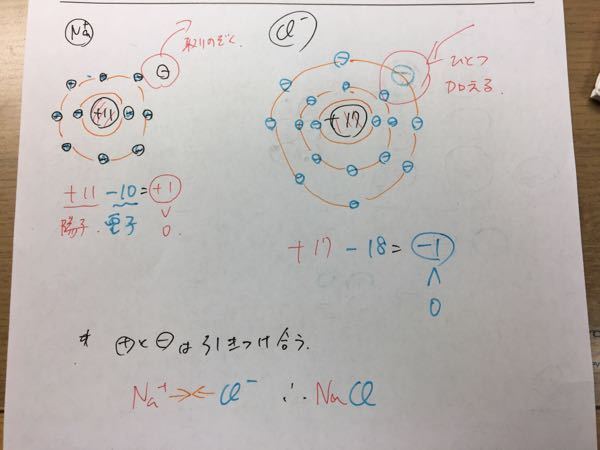 Na⁺
取りのぞく
⊖
+11
+11 -10 = +1
陽子 電子
∨
0
Cl⁻
ひとつ
加える
+17
+17 - 18 = -1
∧
0
* ⊕と⊖は引きつけ合う.
Na⁺ →← Cl⁻ ∴ NaCl